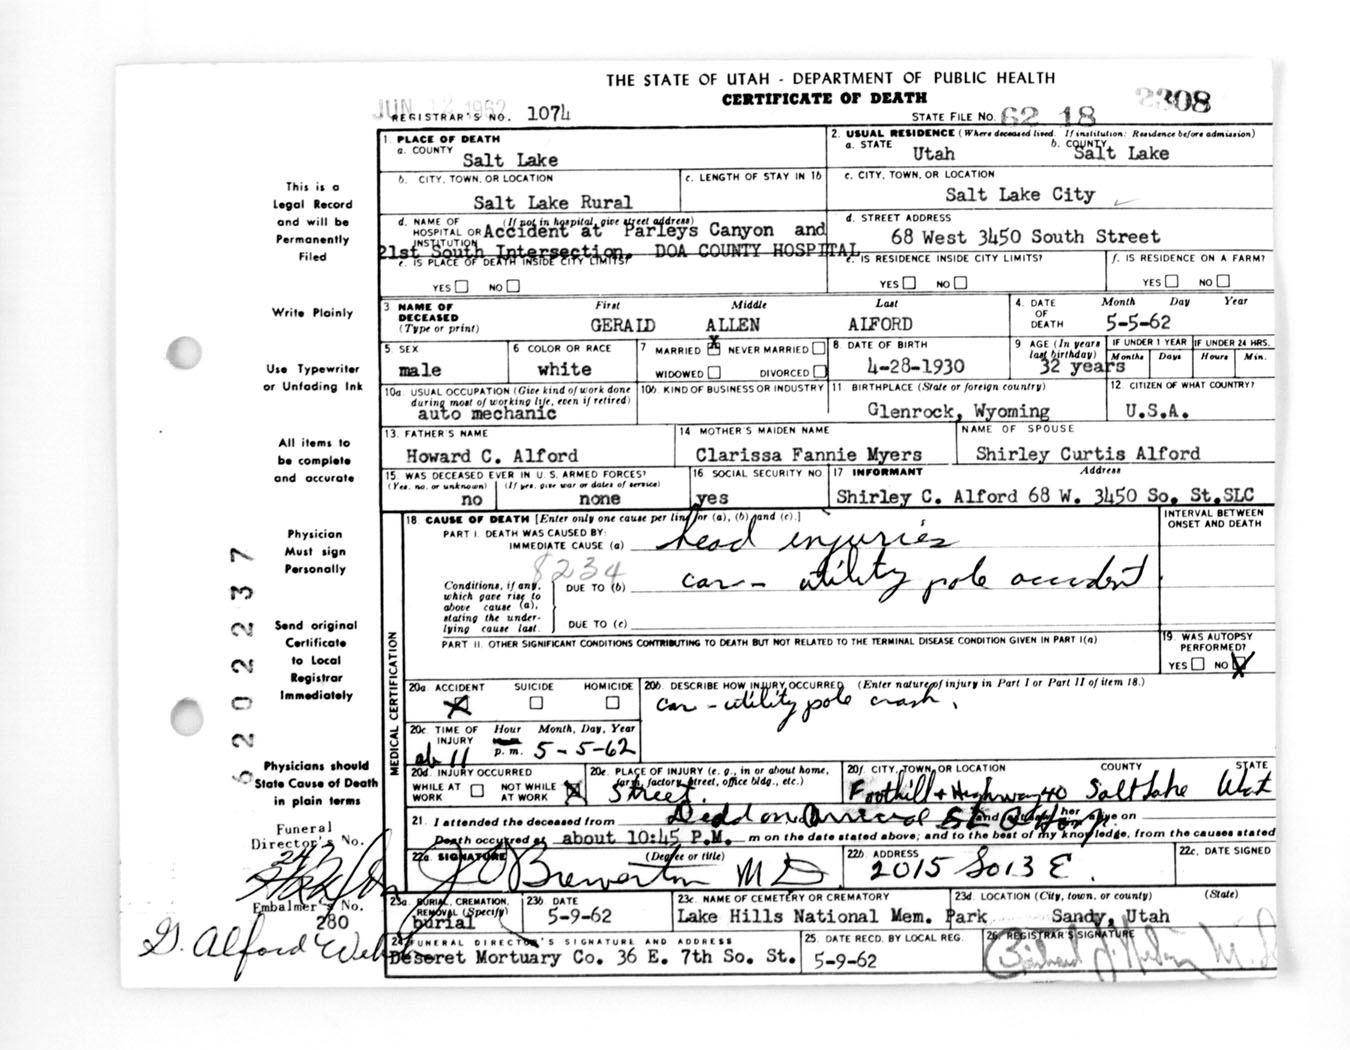 THE STATE OF UTAH - DEPARTMENT OF PUBLIC HEALTH
CERTIFICATE OF DEATH
JUN 12 1962
REGISTRAR'S NO. 1074
STATE FILE NO. 62 18 2308
1. PLACE OF DEATH
a. COUNTY Salt Lake
2. USUAL RESIDENCE (Where deceased lived. If institution: Residence before admission)
a. STATE Utah b. COUNTY Salt Lake
b. CITY, TOWN, OR LOCATION Salt Lake Rural
c. LENGTH OF STAY IN 1b
c. CITY, TOWN, OR LOCATION Salt Lake City
d. NAME OF HOSPITAL OR INSTITUTION (If not in hospital, give street address)
Accident at Parleys Canyon and
21st South Intersection, DOA COUNTY HOSPITAL
d. STREET ADDRESS
68 West 3450 South Street
e. IS PLACE OF DEATH INSIDE CITY LIMITS?
YES NO
e. IS RESIDENCE INSIDE CITY LIMITS?
YES NO
f. IS RESIDENCE ON A FARM?
YES NO
3 NAME OF DECEASED (Type or print)
First Middle Last
GERALD ALLEN ALFORD
4. DATE OF DEATH Month Day Year
5-5-62
5. SEX male
6 COLOR OR RACE white
7 MARRIED X NEVER MARRIED
WIDOWED DIVORCED
8. DATE OF BIRTH 4-28-1930
9 AGE (In years last birthday) 32 years
IF UNDER 1 YEAR Months Days
IF UNDER 24 HRS. Hours Min.
10a USUAL OCCUPATION (Give kind of work done during most of working life, even if retired)
auto mechanic
10b. KIND OF BUSINESS OR INDUSTRY
11 BIRTHPLACE (State or foreign country)
Glenrock, Wyoming
12. CITIZEN OF WHAT COUNTRY?
U.S.A.
13. FATHER'S NAME
Howard C. Alford
14 MOTHER'S MAIDEN NAME
Clarissa Fannie Myers
NAME OF SPOUSE
Shirley Curtis Alford
15. WAS DECEASED EVER IN U.S. ARMED FORCES?
(Yes, no, or unknown) (If yes, give war or dates of service)
no none
16 SOCIAL SECURITY NO.
yes
17 INFORMANT Address
Shirley C. Alford 68 W. 3450 So. St.SLC
18. CAUSE OF DEATH [Enter only one cause per line for (a), (b) and (c).]
INTERVAL BETWEEN ONSET AND DEATH
PART I. DEATH WAS CAUSED BY:
IMMEDIATE CAUSE (a) head injuries
8234
Conditions, if any, which gave rise to above cause (a), stating the underlying cause last.
DUE TO (b) car - utility pole accident
DUE TO (c)
PART II. OTHER SIGNIFICANT CONDITIONS CONTRIBUTING TO DEATH BUT NOT RELATED TO THE TERMINAL DISEASE CONDITION GIVEN IN PART I(a)
19 WAS AUTOPSY PERFORMED?
YES NO X
MEDICAL CERTIFICATION
20a. ACCIDENT X SUICIDE HOMICIDE
20b. DESCRIBE HOW INJURY OCCURRED (Enter nature of injury in Part I or Part II of item 18.)
car - utility pole crash.
20c. TIME OF INJURY Hour Month, Day, Year
ab 11 p.m. 5-5-62
20d. INJURY OCCURRED
WHILE AT WORK NOT WHILE AT WORK X
20e. PLACE OF INJURY (e. g., in or about home, farm, factory, street, office bldg., etc.)
Street.
20f. CITY, TOWN, OR LOCATION COUNTY STATE
Foothill + Highway 40 Salt Lake Utah
21. I attended the deceased from Dead on Arrival alive on
Death occurred at about 10:45 P.M. m on the date stated above; and to the best of my knowledge, from the causes stated
22a. SIGNATURE (Degree or title)
J O Brewerton MD
22b. ADDRESS
2015 So 13 E.
22c. DATE SIGNED
23a. BURIAL, CREMATION, REMOVAL (Specify)
burial
23b DATE
5-9-62
23c. NAME OF CEMETERY OR CREMATORY
Lake Hills National Mem. Park
23d. LOCATION (City, town, or county) (State)
Sandy, Utah
24. FUNERAL DIRECTOR'S SIGNATURE AND ADDRESS
Deseret Mortuary Co. 36 E. 7th So. St.
25. DATE RECD. BY LOCAL REG.
5-9-62
26. REGISTRAR'S SIGNATURE
This is a
Legal Record
and will be
Permanently
Filed
Write Plainly
Use Typewriter
or Unfading Ink
All items to
be complete
and accurate
Physician
Must sign
Personally
Send original
Certificate
to Local
Registrar
Immediately
Physicians should
State Cause of Death
in plain terms
Funeral
Director's No.
Embalmer's No.
280
G. Alford
62022237